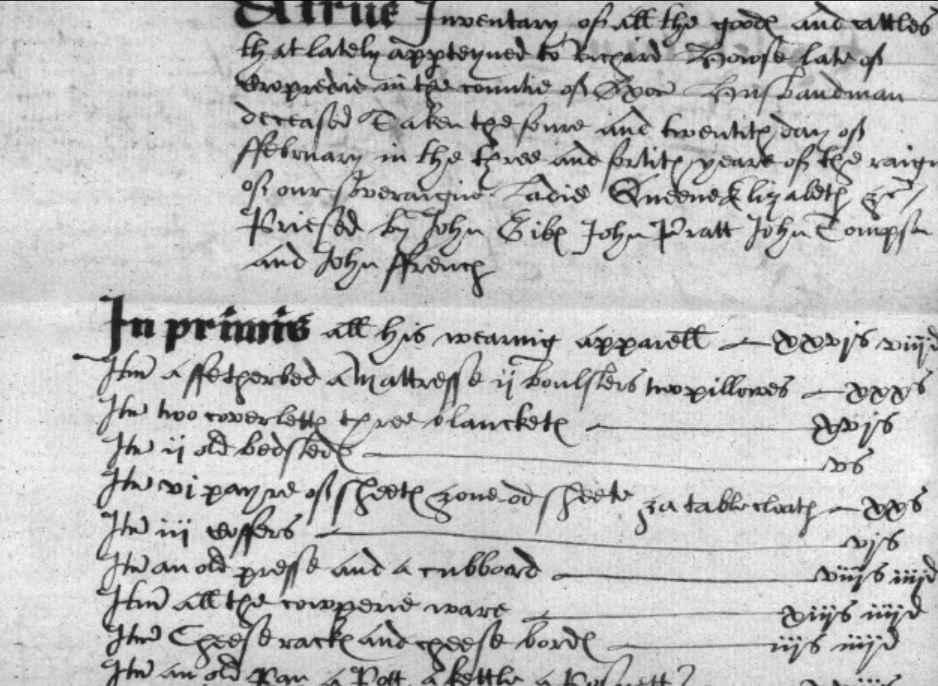 A true Inventary of all the goodes and cattles
that lately apperteyned to Richard Howse late of
Cropredie in the countie of Oxon Husbandman
deceased Taken the foure and twentith day of
ffebruary in the three and fortith yeare of the raign
of our Soveraigne Ladie Queene Elizabeth &c
Priesed by John Gibbs John Pratt John Tompson
and John ffrench
In primis all his wearing apparell xxvjs viijd
Itm a ffetherbed a Mattresse ij boulsters two pillowes xxxs
Itm two coverlettes three blanckettes xvjs
Itm ij old bedsteds vs
Itm vi payre of sheetes & one od sheete & a table cloath xxs
Itm iij coffers vjs
Itm an old presse and a cubbord viijs iiijd
Itm all the cowperie ware xiijs iiijd
Itm Cheese rack and cheese bordes iijs iiijd
Itm an old Pan a Pott a kettle a Posnett